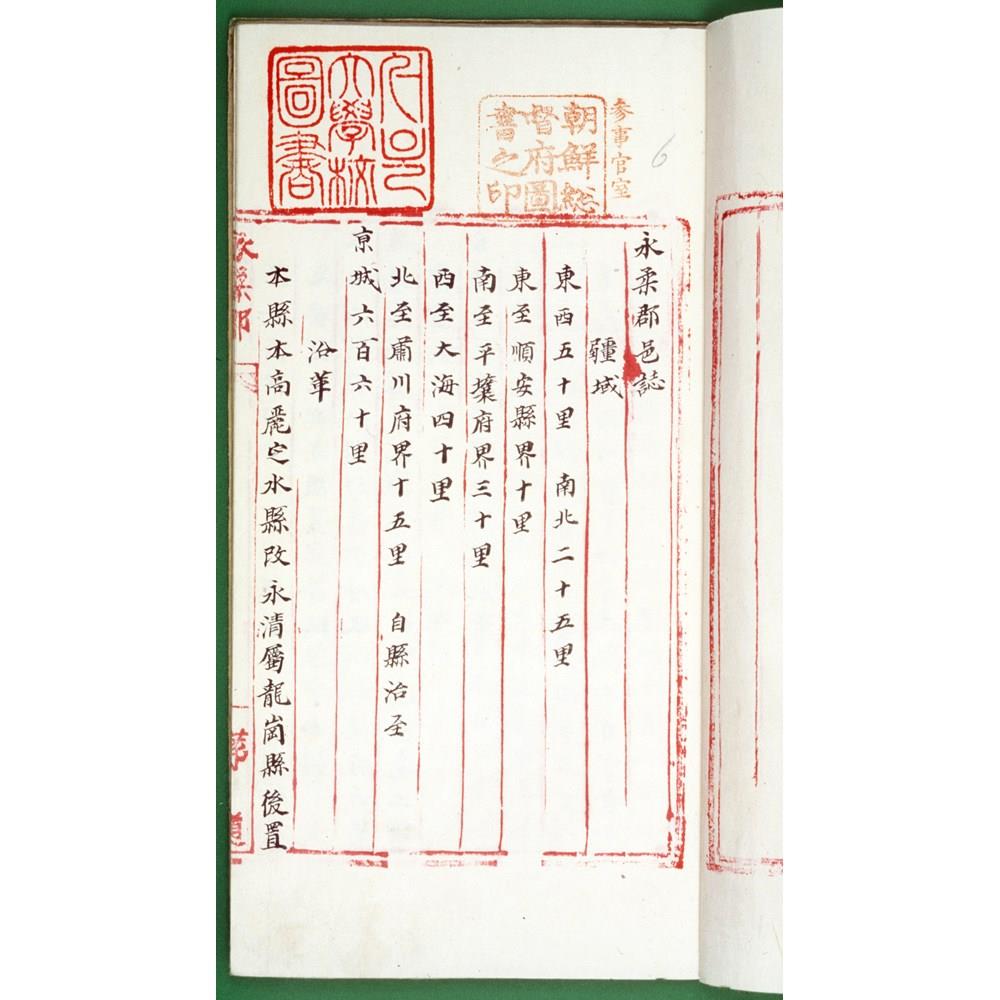 参事官室
朝鮮総
督府圖
書之印
6
서울
大學校
圖書
永柔郡邑誌
疆域
東西五十里 南北二十五里
東至順安縣界十里
南至平壤府界三十里
西至大海四十里
北至肅川府界十五里 自縣治至
京城六百六十里
沿革
本縣本高麗定水縣改永清屬龍崗縣後置
永柔郡